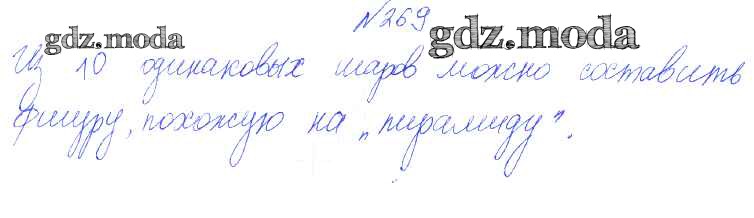 №269
gdz.moda gdz.moda
Из 10 одинаковых шаров можно составить
фигуру, похожую на „пирамиду".